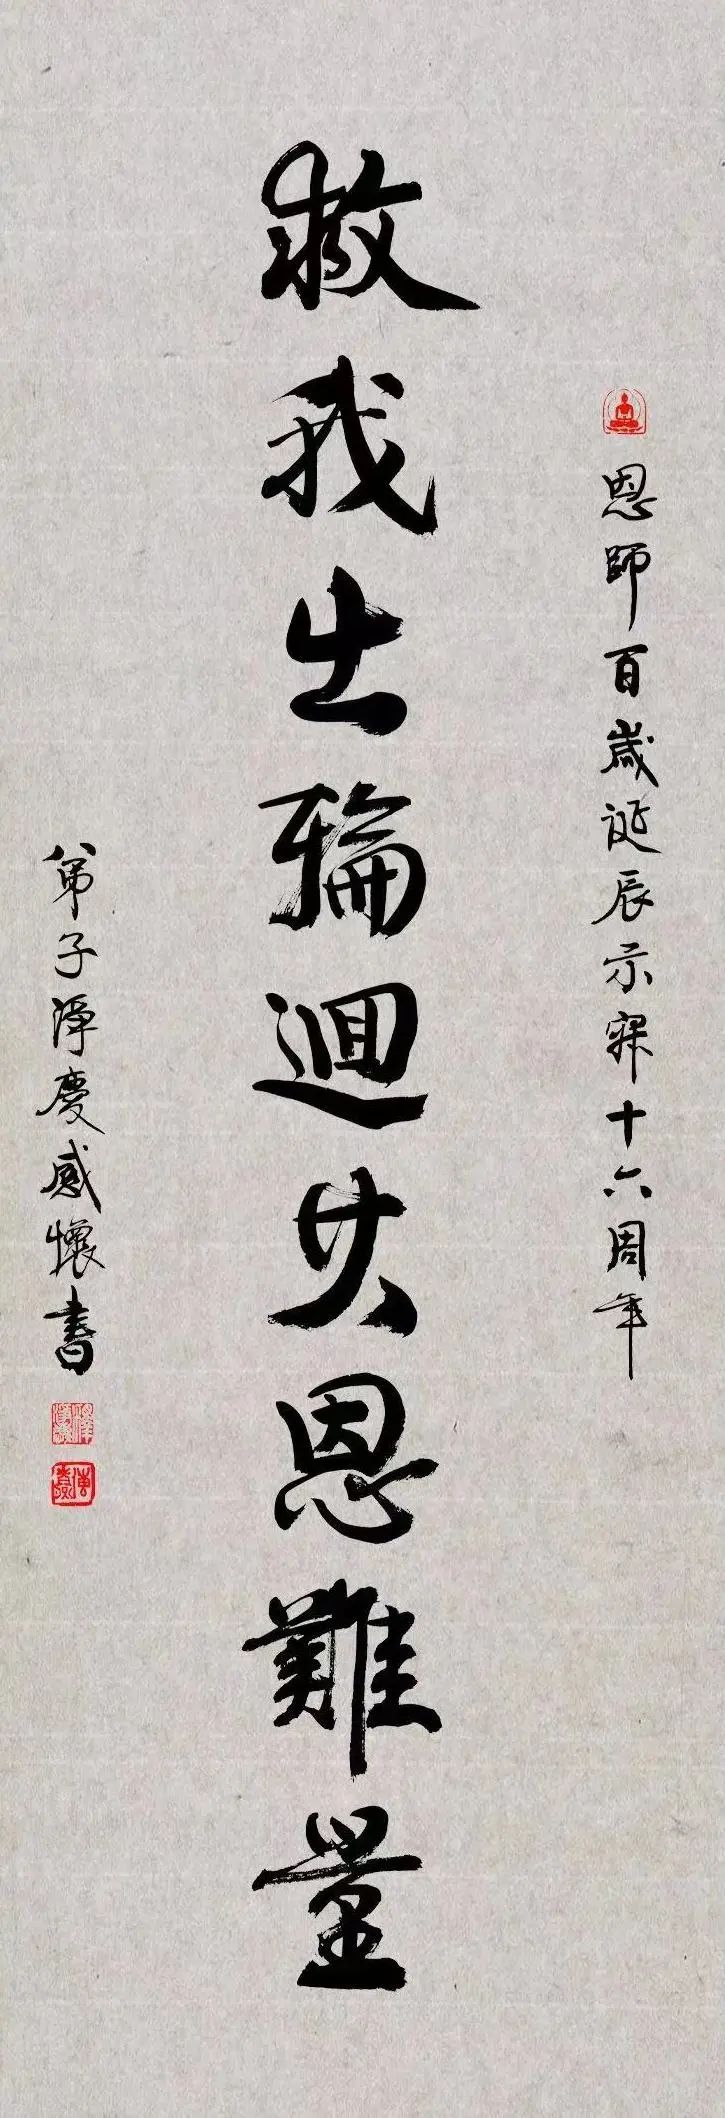 恩師百歲誕辰示寂十六周年
救我出輪迴其恩難量
弟子淨慶感懷書